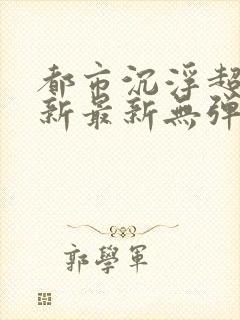 都市沉浮超
新最新無彈
郭學軍